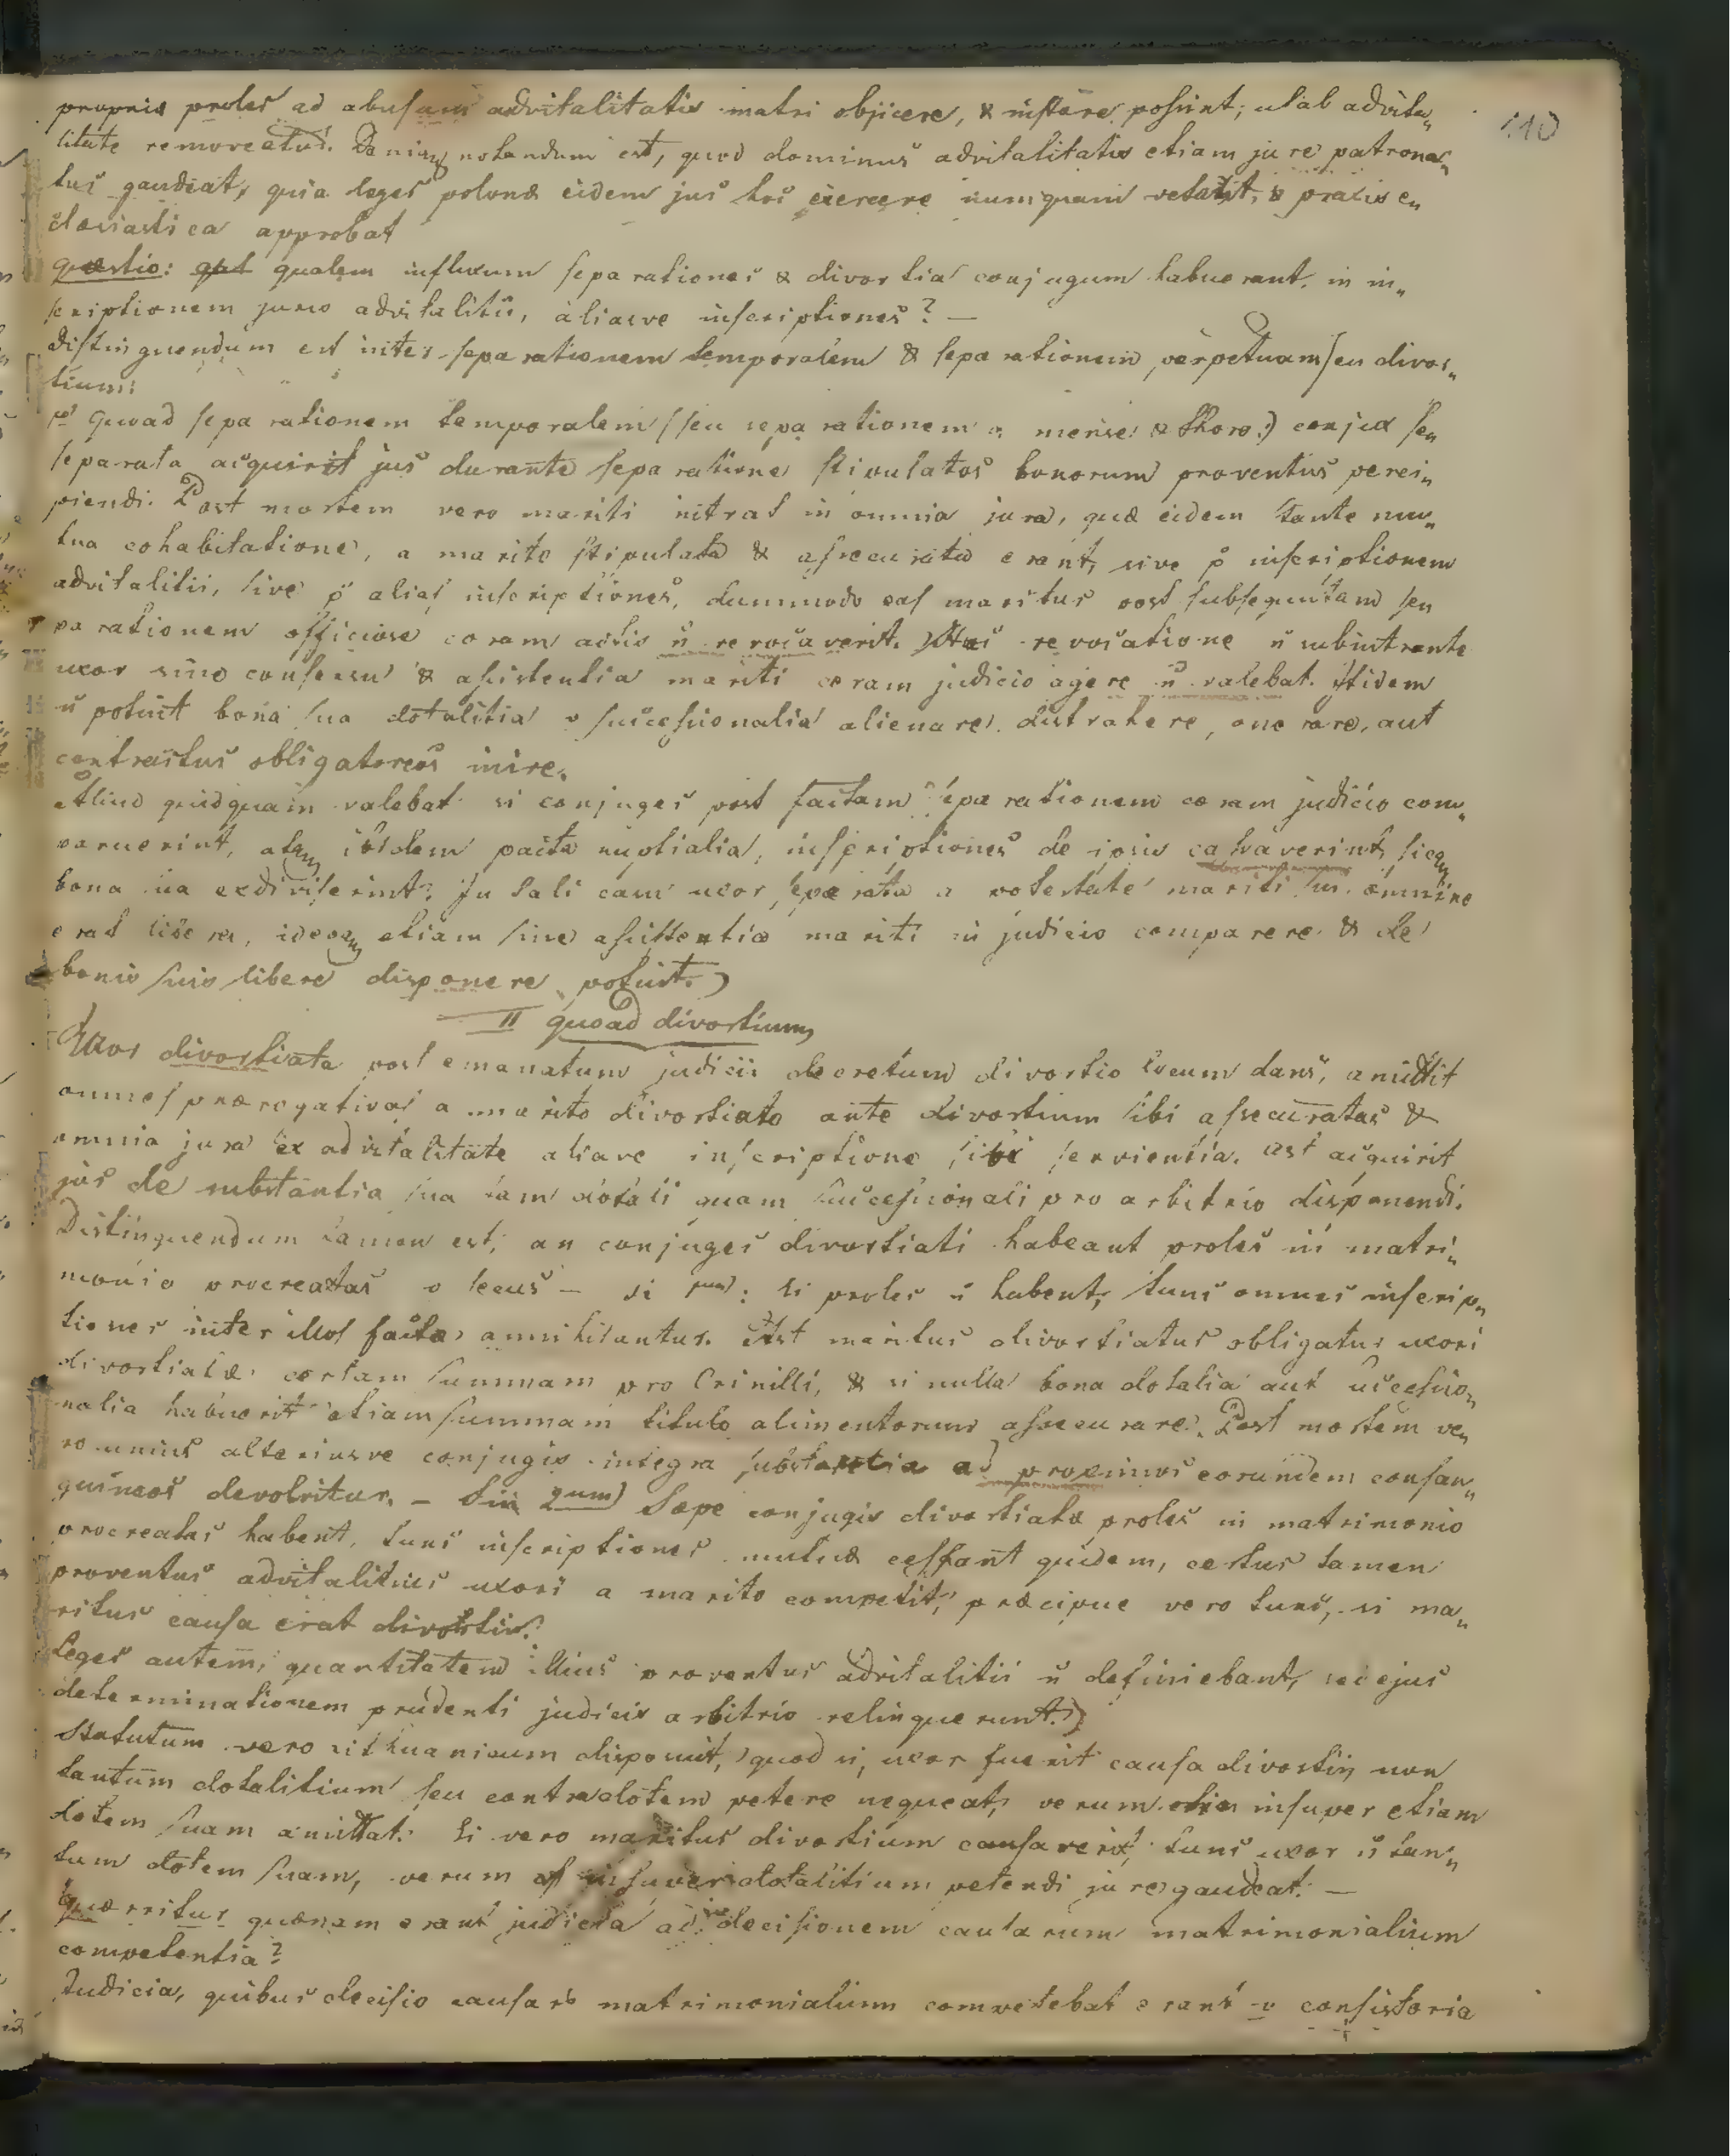 110
propria proles ad abusum advitalitatis matri objicere, & instare possint, ut ab advita„
litate removeatur. Denique notandum est, quod dominus advitalitatis etiam jure patrona„
tus gaudeat, quia leges polonæ eidem jus hoc exercere nunquam vetabant, & praxis e„
clesiastica approbat
Quæstio: qualem influxum separationes & divortia conjugum habuerant in in„
scriptionem juris advitalitii, aliasve inscriptiones? —
Distinguendum est inter separationem temporalem & separationem perpetuam seu divor„
tium:
Quoad separationem temporalem (seu separationem a mensa & thoro:) conjux se„
separata acquirit jus durante separatione stipulatos bonorum proventus perci„
piendi. Post mortem vero mariti intrat in omnia jura, quæ eidem stante mu„
tua cohabitatione, a marito stipulata & assecurata erant, sive p inscriptionem
advitalitii, sive p alias inscriptiones, dummodo eas maritus post subsequutam se„
parationem officiose coram actis ñ revocaverit. Hac revocatione ñ subintrante
uxor sine consensu & assistentia mariti coram judicio agere ñ valebat. Itidem
ñ potuit bona sua dotalitia v successionalia alienare, distrahere, onerare, aut
contractus obligatorios inire.
Aliud quidquam valebat si conjuges post factam separationem coram judicio com„
paruerint, atque ibidem pacta nuptialia, inscriptiones de ipsis cassaverint, sicque
bona sua exdiviserint: In tali casu uxor separata a potestate mariti sui omnino
erat libera, ideoque etiam sine assistentia mariti in judicio comparere & de
bonis suis libere disponere potuit.
II quoad divortium
Uxor divortiata post emanatum judicii decretum divortio locum dans, amittit
omnes prærogativas a marito divortiato ante divortium sibi assecuratas &
omnia jura ex advitalitate aliave inscriptione sibi servientia. ast acquirit
jus de substantia sua tam dotali quam successionali pro arbitrio disponendi.
Distinguendum tamen est, an conjuges divortiati habeant proles in matri„
monio procreatas v secus — si 1mum: si proles ñ habent, tunc omnes inscrip„
tiones inter illos factæ annihilantur. Ast maritus divortiatus obligatur uxori
divortiatæ certam summam pro Crinilli, & si nulla bona dotalia aut successio„
nalia habuerit etiam summam titulo alimentorum assecurare. Post mortem ve„
ro unius alteriusve conjugis integra substantia ad proximos eorundem consan„
guineos devolvitur. — Sin 2dum) Sæpe conjugis divortiatæ proles in matrimonio
procreatas habent, tunc inscriptiones mutuæ cessant quidem, certus tamen
proventus advitalitius uxori a marito competit, præcipue vero tunc, si ma„
ritus causa erat divortii.
Leges autem, quantitatem illius proventus advitalitii ñ definiebant, sed ejus
determinationem prudenti judicis arbitrio relinquerunt.)
Statutum vero Lithuanicum disponit, quod si, uxor fuerit causa divortii, non
tantum dotalitium seu contradotem petere nequeat, verum insuper etiam
dotem suam amittat. Si vero maritus divortium causaverit, tunc uxor ñ tan„
tum dotem suam, verum insuper dotalitium petendi jure gaudeat. —
Quæritur quænam erant judicia ad decisionem causarum matrimonialium
competentia?
Judicia, quibus decisio causarū matrimonialium competebat erant consistoria